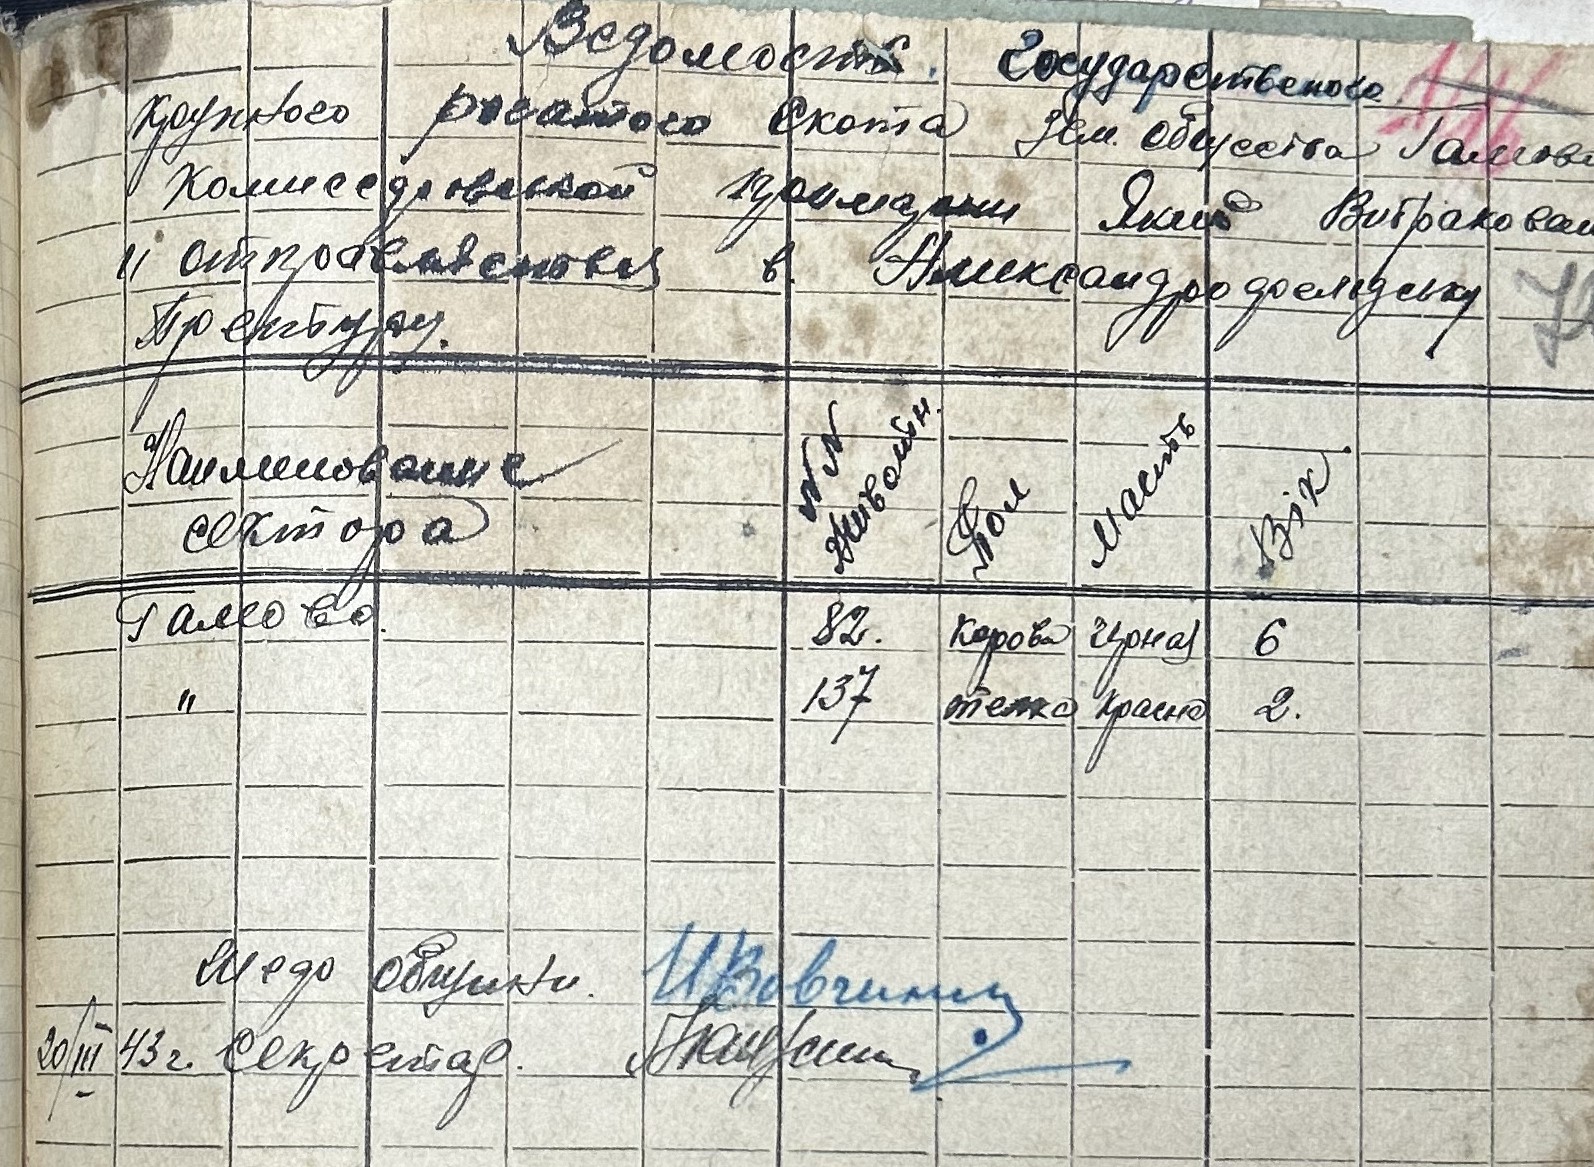 Ведомость. Государственого
Крупного рогатого Скота Зем. Общества Гамова
Комиссаровской Якие Витракован
и отправляется в. Александродрельдську
Прентуру.
Наименование
сектора
NN
Животн.
Пол
Масть
Вік
Гамова. 82. Корова Чорная 6
" 137 телка Красна 2.
общини. ИВовчинин
20/III 43 г. Секретар.